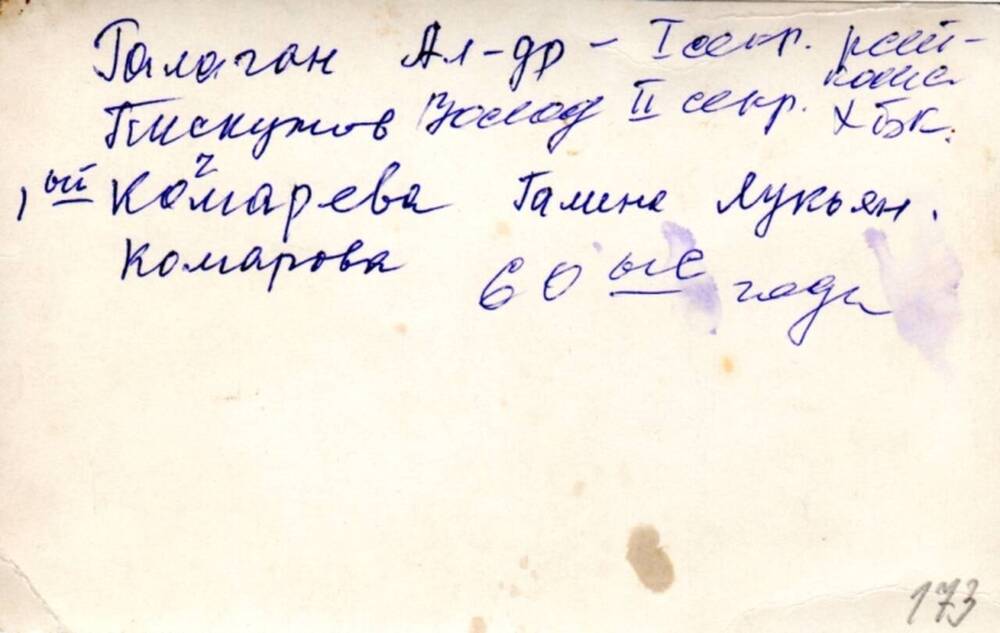 Галаган Ал-др - I секр. рай-
кома
Пискунов Волод II секр. ХбК.
, ый Комарева Галина Лукьян.
Комарова
60 ые годы
173